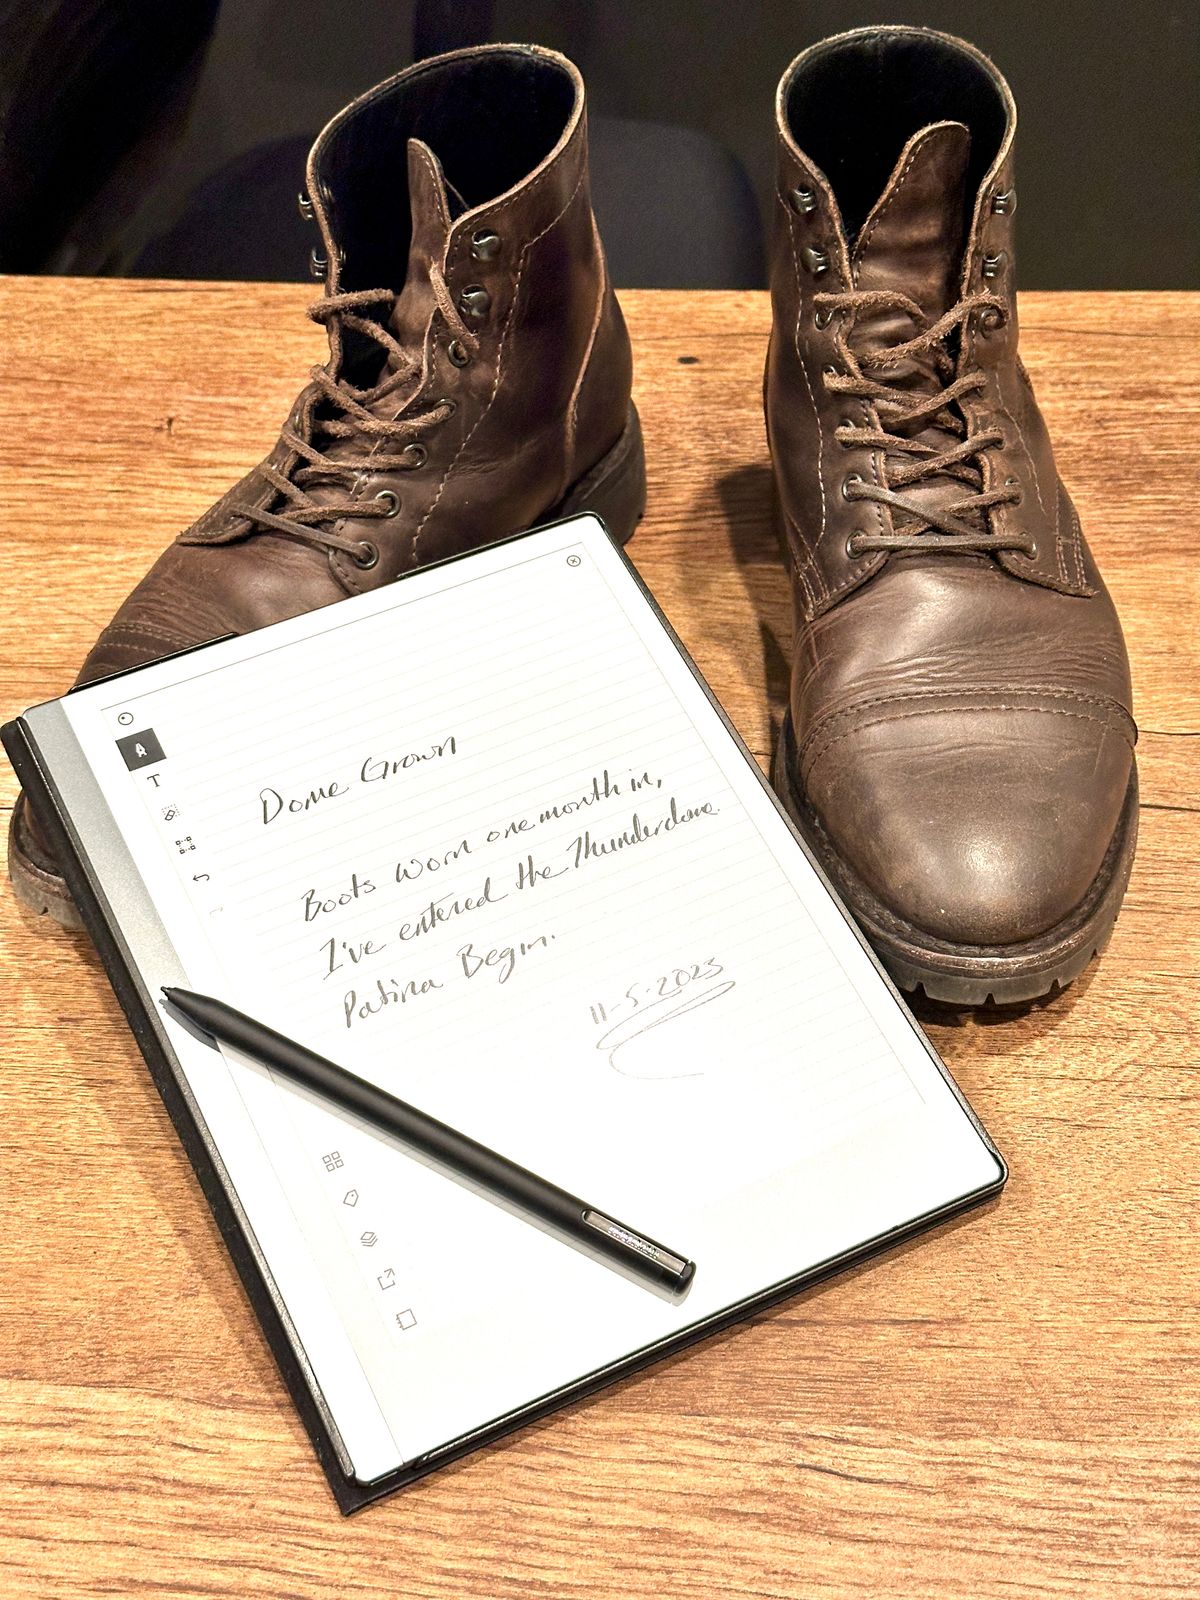 Dome Grown
Boots worn one month in,
I've entered the Thunderdome.
Patina Begin.
11-5-2023
T